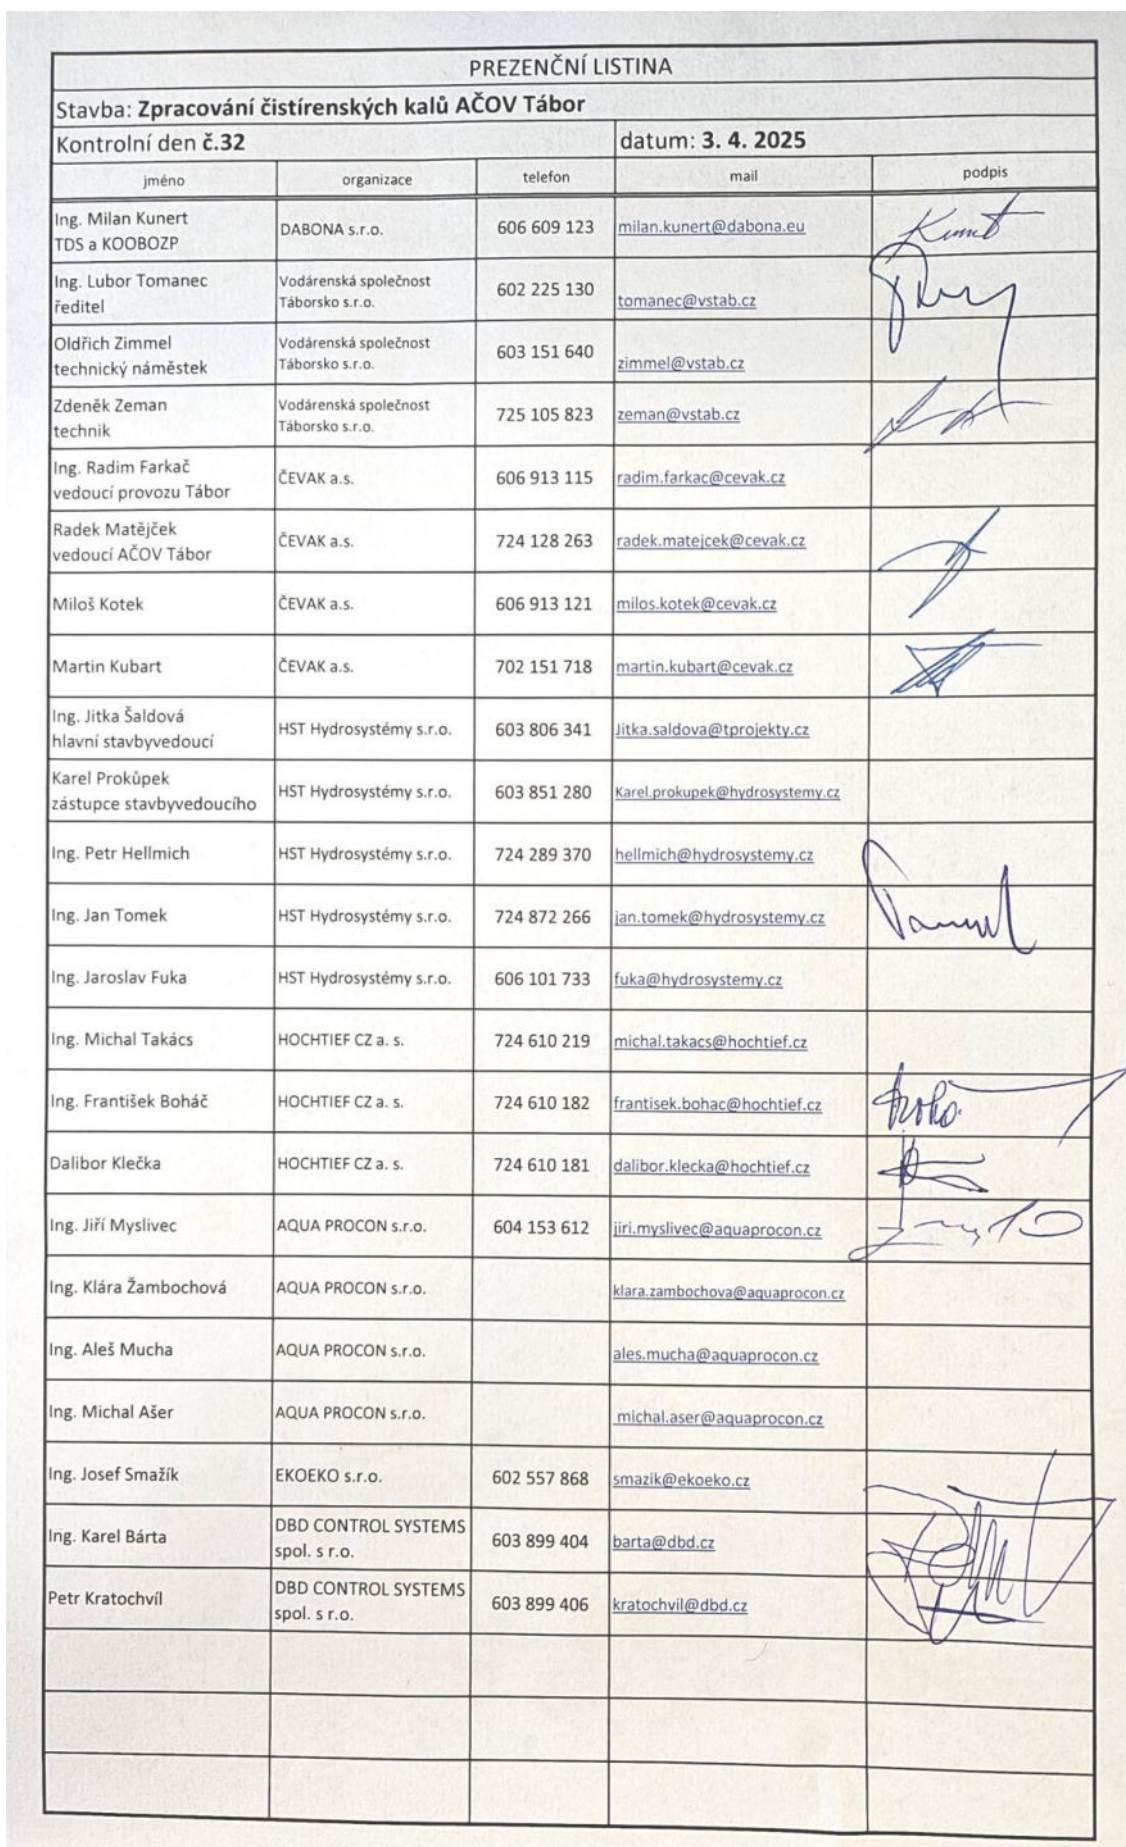 PREZENČNÍ LISTINA
Stavba: Zpracování čistírenských kalů AČOV Tábor
Kontrolní den č.32 datum: 3. 4. 2025
jméno organizace telefon mail podpis
Ing. Milan Kunert
TDS a KOOBOZP
DABONA s.r.o. 606 609 123 milan.kunert@dabona.eu
Ing. Lubor Tomanec
ředitel
Vodárenská společnost
Táborsko s.r.o.
602 225 130 tomanec@vstab.cz
Oldřich Zimmel
technický náměstek
Vodárenská společnost
Táborsko s.r.o.
603 151 640 zimmel@vstab.cz
Zdeněk Zeman
technik
Vodárenská společnost
Táborsko s.r.o.
725 105 823 zeman@vstab.cz
Ing. Radim Farkač
vedoucí provozu Tábor
ČEVAK a.s. 606 913 115 radim.farkac@cevak.cz
Radek Matějček
vedoucí AČOV Tábor
ČEVAK a.s. 724 128 263 radek.matejcek@cevak.cz
Miloš Kotek ČEVAK a.s. 606 913 121 milos.kotek@cevak.cz
Martin Kubart ČEVAK a.s. 702 151 718 martin.kubart@cevak.cz
Ing. Jitka Šaldová
hlavní stavbyvedoucí
HST Hydrosystémy s.r.o. 603 806 341 Jitka.saldova@tprojekty.cz
Karel Prokůpek
zástupce stavbyvedoucího
HST Hydrosystémy s.r.o. 603 851 280 Karel.prokupek@hydrosystemy.cz
Ing. Petr Hellmich HST Hydrosystémy s.r.o. 724 289 370 hellmich@hydrosystemy.cz
Ing. Jan Tomek HST Hydrosystémy s.r.o. 724 872 266 jan.tomek@hydrosystemy.cz
Ing. Jaroslav Fuka HST Hydrosystémy s.r.o. 606 101 733 fuka@hydrosystemy.cz
Ing. Michal Takács HOCHTIEF CZ a. s. 724 610 219 michal.takacs@hochtief.cz
Ing. František Boháč HOCHTIEF CZ a. s. 724 610 182 frantisek.bohac@hochtief.cz
Dalibor Klečka HOCHTIEF CZ a. s. 724 610 181 dalibor.klecka@hochtief.cz
Ing. Jiří Myslivec AQUA PROCON s.r.o. 604 153 612 jiri.myslivec@aquaprocon.cz
Ing. Klára Žambochová AQUA PROCON s.r.o. klara.zambochova@aquaprocon.cz
Ing. Aleš Mucha AQUA PROCON s.r.o. ales.mucha@aquaprocon.cz
Ing. Michal Ašer AQUA PROCON s.r.o. michal.aser@aquaprocon.cz
Ing. Josef Smažík EKOEKO s.r.o. 602 557 868 smazik@ekoeko.cz
Ing. Karel Bárta
DBD CONTROL SYSTEMS
spol. s r.o.
603 899 404 barta@dbd.cz
Petr Kratochvíl
DBD CONTROL SYSTEMS
spol. s r.o.
603 899 406 kratochvil@dbd.cz